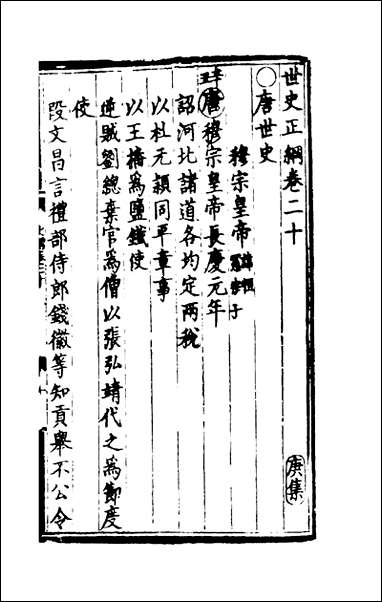 世史正綱卷二十 庚集
○唐世史
穆宗皇帝 諱恆憲宗子
辛丑 唐穆宗皇帝長慶元年
詔河北諸道各均定兩稅
以杜元穎同平章事
以王播為鹽鐵使
逆賊劉總棄官為僧以張弘靖代之為節度
使
段文昌言禮部侍郎錢徽等知貢舉不公令